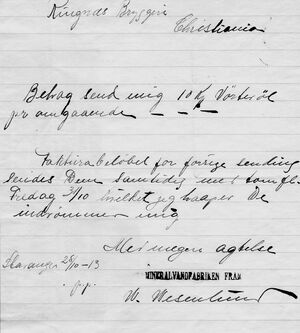 Ringnæs Bryggeri
Christiania
Behag send mig 10 Kg Vørterøl
pr omgaaende
Fakturabeløbet for forrige sending
sendes Dem samtidig med
Fredag 3/10 hvilket jeg haaper De
indrømmer mig
Med megen agtelse
Stavanger 28/10-13
MINERALVANDFABRIKEN FRAM
p.p.
W. Wesenlund